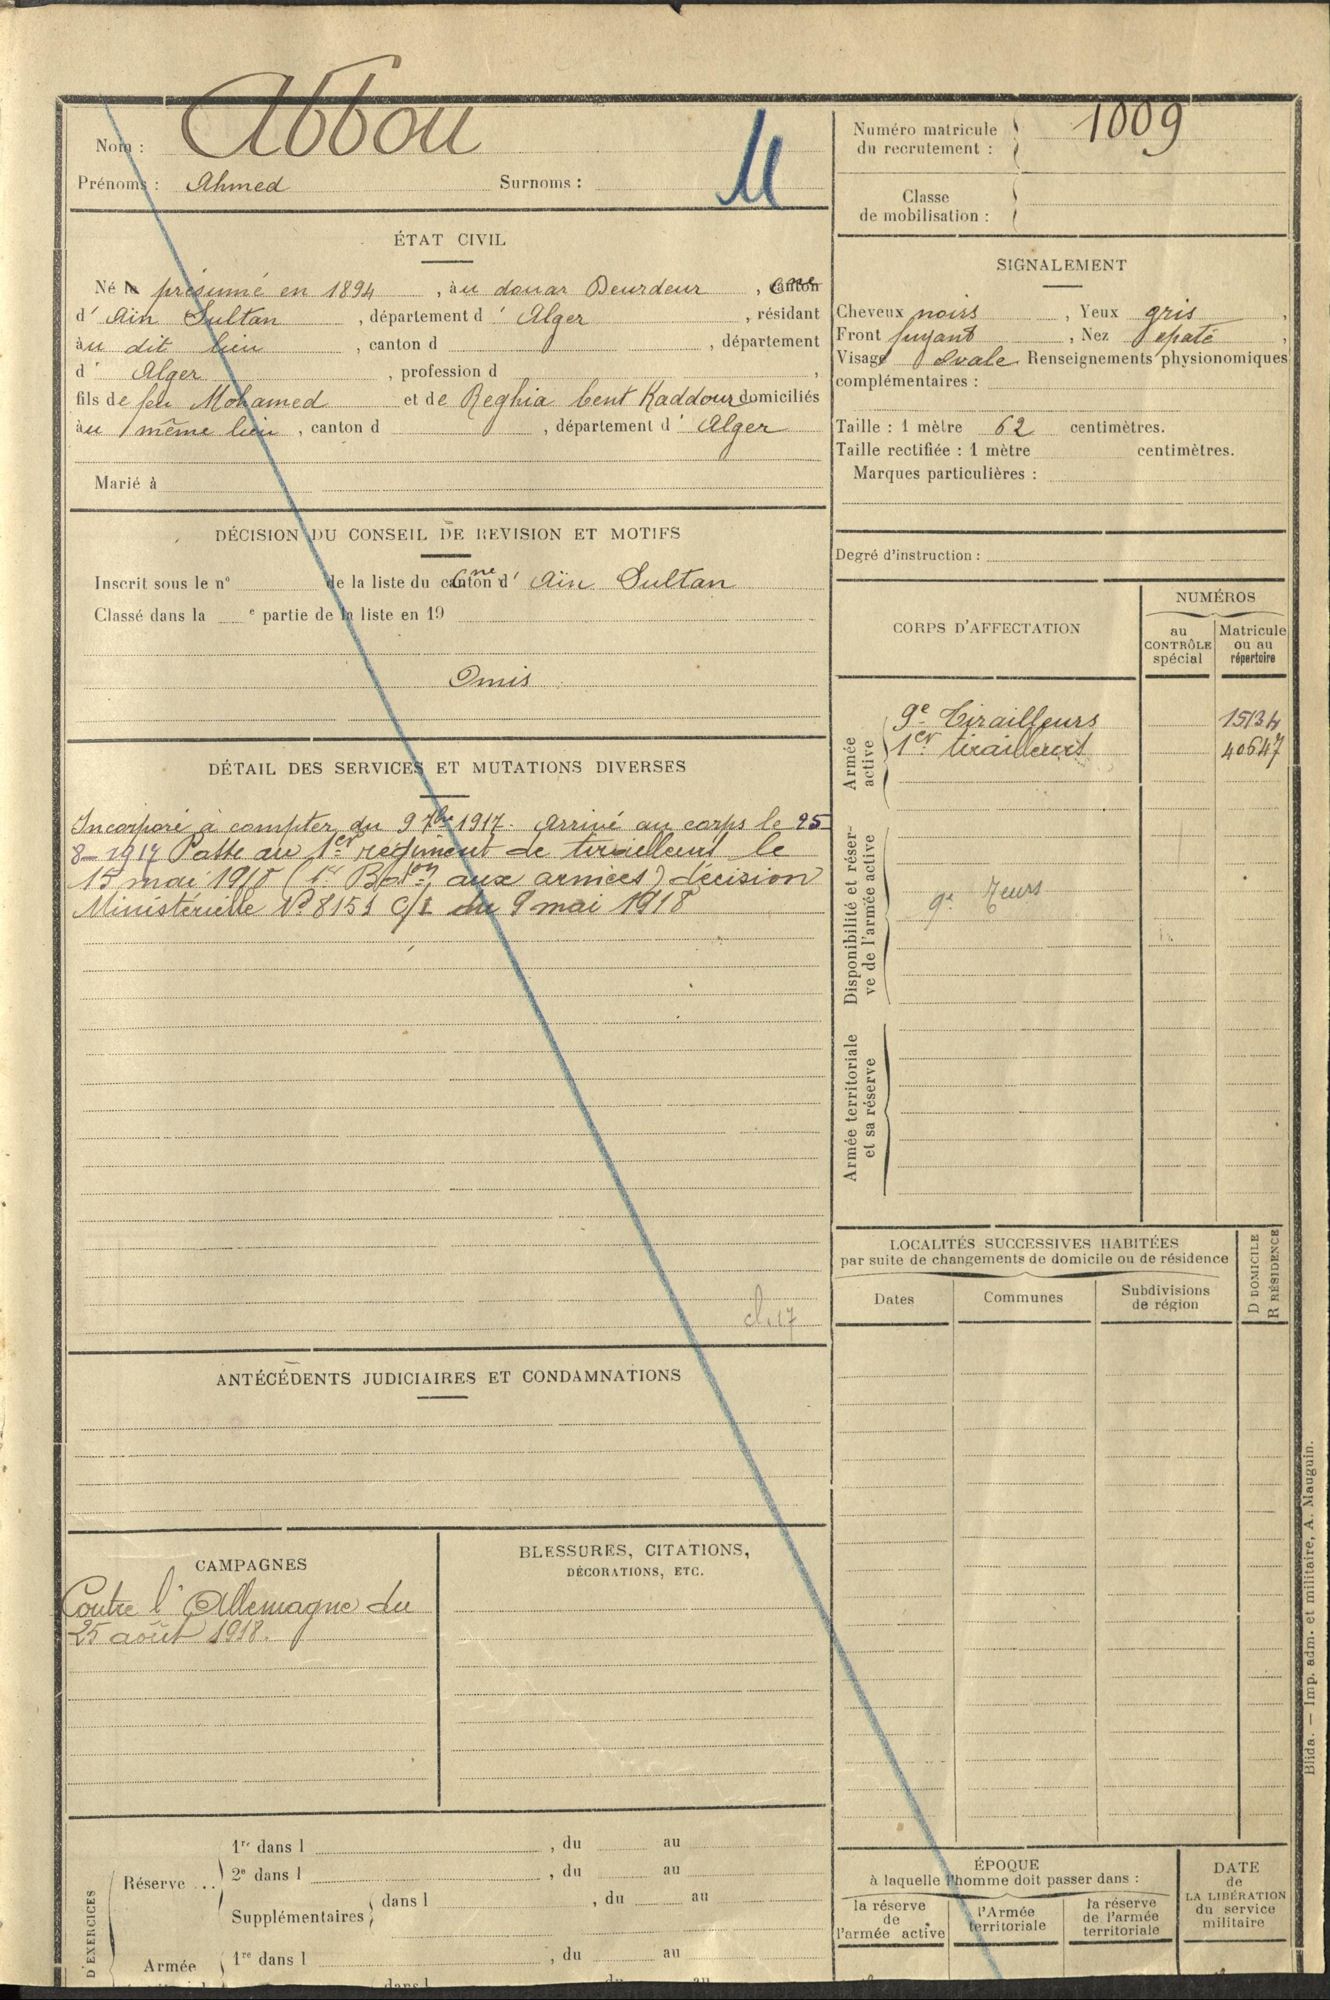 Nom : Abbou
Prénoms : Ahmed Surnoms :
M
Numéro matricule
du recrutement : 1009
Classe
de mobilisation :
ÉTAT CIVIL
Né le présumé en 1894, au douar Beurdeur, canton Cne
d' Ain Sultan, département d' Alger, résidant
au dit lieu, canton d , département
d' Alger, profession d ,
fils de feu Mohamed et de Reghia bent Kaddour domiciliés
au même lieu, canton d , département d' Alger
Marié à
SIGNALEMENT
Cheveux noirs, Yeux gris,
Front fuyant, Nez épaté,
Visage Ovale Renseignements physionomiques
complémentaires :
Taille : 1 mètre 62 centimètres.
Taille rectifiée : 1 mètre centimètres.
Marques particulières :
Degré d'instruction :
DÉCISION DU CONSEIL DE REVISION ET MOTIFS
Inscrit sous le n° de la liste du canton Cne d' Aïn Sultan
Classé dans la e partie de la liste en 19
Omis
CORPS D'AFFECTATION
NUMÉROS
au
CONTRÔLE
spécial
Matricule
ou au
répertoire
Armée
active
9e Tirailleurs 15134
1er tirailleurs 40647
Disponibilité et réser-
ve de l'armée active
9e Teurs
Armée territoriale
et sa réserve
DÉTAIL DES SERVICES ET MUTATIONS DIVERSES
Incorporé à compter du 9 7bre 1917. Arrivé au corps le 25
8-1917 Passé au 1er régiment de tirailleurs le
15 mai 1918 (1er Baton aux armées) décision
Ministérielle No 8151 C/1 du 9 mai 1918
cl. 17
LOCALITÉS SUCCESSIVES HABITÉES
par suite de changements de domicile ou de résidence
Dates
Communes
Subdivisions
de région
D DOMICILE
R RÉSIDENCE
ANTÉCÉDENTS JUDICIAIRES ET CONDAMNATIONS
CAMPAGNES
Contre l'Allemagne du
25 août 1918.
BLESSURES, CITATIONS,
DÉCORATIONS, ETC.
D'EXERCICES
Réserve ...
1re dans l , du au
2e dans l , du au
Supplémentaires dans l , du au
Armée
1re dans l , du au
dans l du au
ÉPOQUE
à laquelle l'homme doit passer dans :
la réserve
de
l'armée active
l'Armée
territoriale
la réserve
de l'armée
territoriale
DATE
de
LA LIBÉRATION
du service
militaire
Blida. — Imp. adm. et militaire, A. Mauguin.